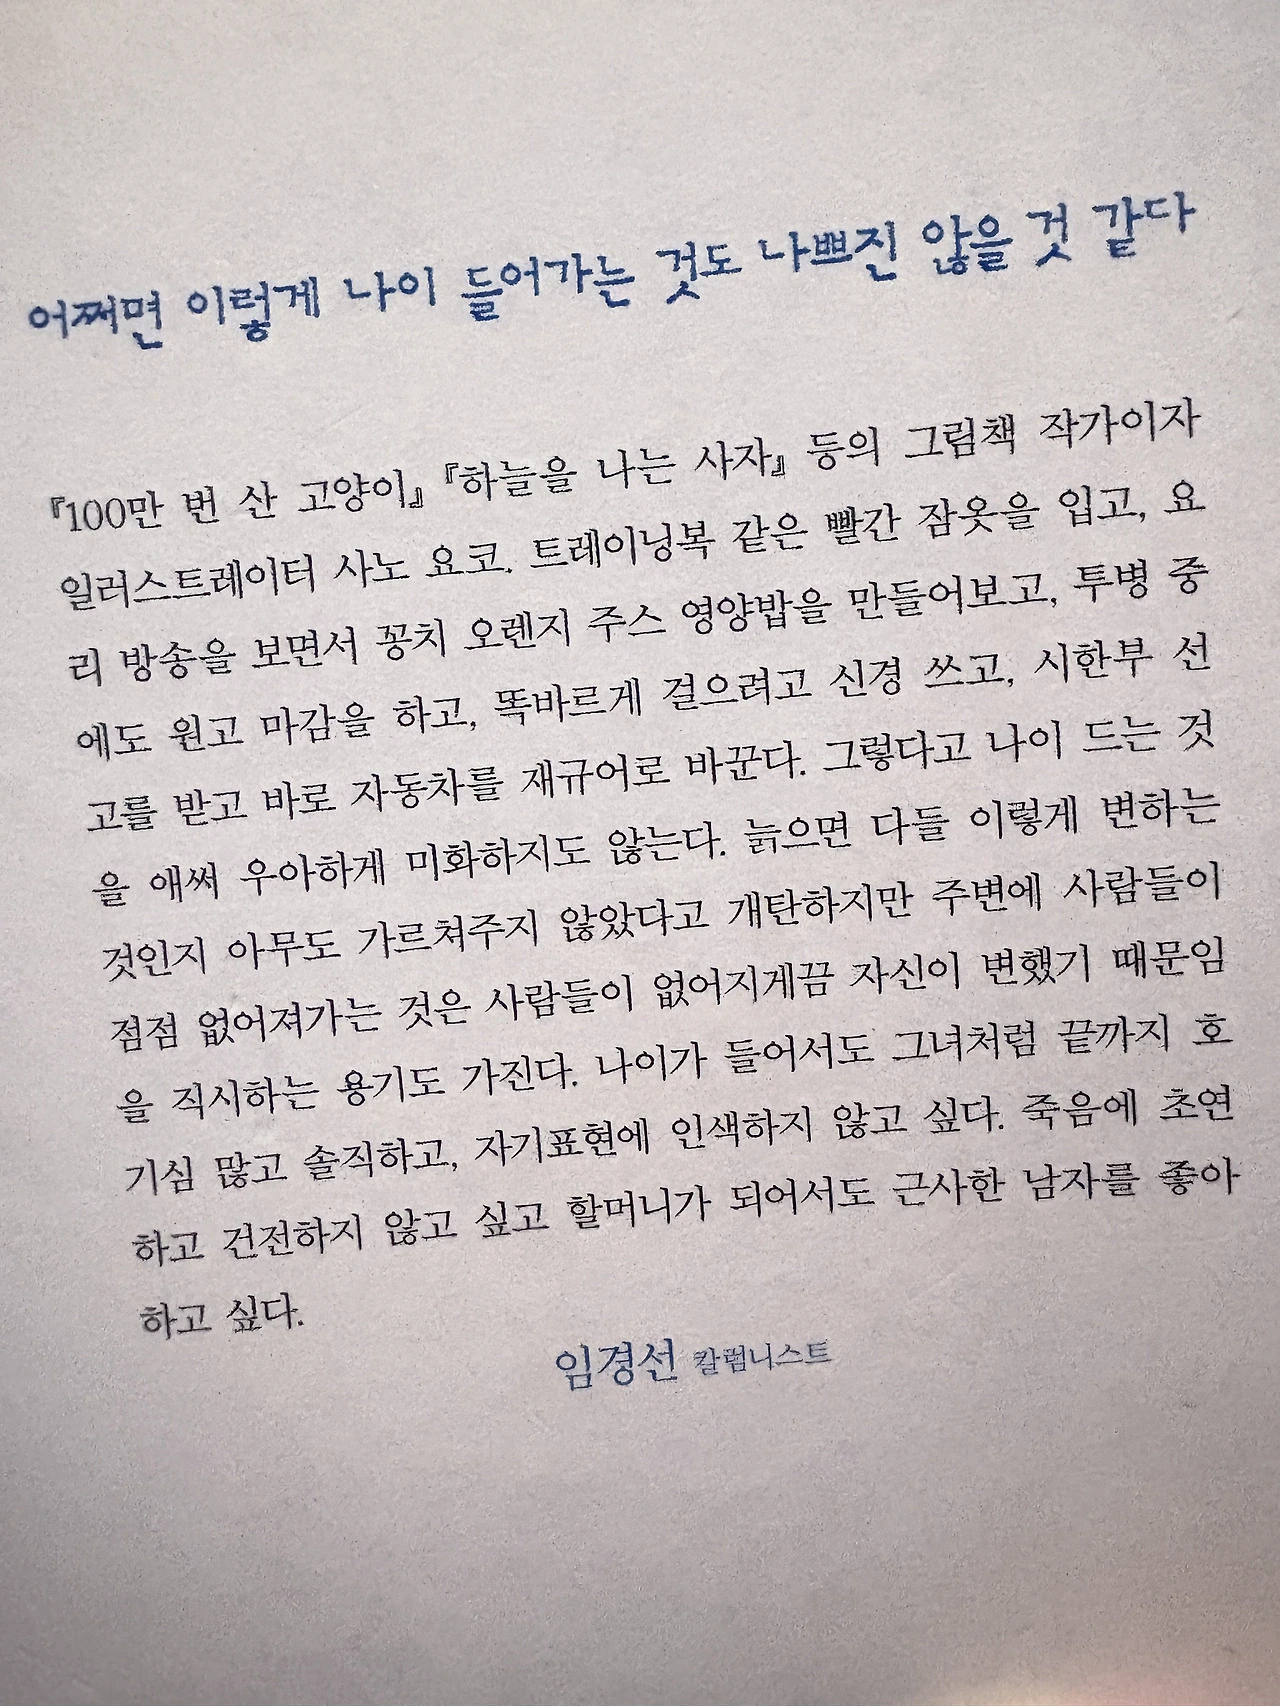 어쩌면 이렇게 나이 들어가는 것도 나쁘진 않을 것 같다
『100만 번 산 고양이』 『하늘을 나는 사자』 등의 그림책 작가이자
일러스트레이터 사노 요코. 트레이닝복 같은 빨간 잠옷을 입고, 요
리 방송을 보면서 꽁치 오렌지 주스 영양밥을 만들어보고, 투병 중
에도 원고 마감을 하고, 똑바르게 걸으려고 신경 쓰고, 시한부 선
고를 받고 바로 자동차를 재규어로 바꾼다. 그렇다고 나이 드는 것
을 애써 우아하게 미화하지도 않는다. 늙으면 다들 이렇게 변하는
것인지 아무도 가르쳐주지 않았다고 개탄하지만 주변에 사람들이
점점 없어져가는 것은 사람들이 없어지게끔 자신이 변했기 때문임
을 직시하는 용기도 가진다. 나이가 들어서도 그녀처럼 끝까지 호
기심 많고 솔직하고, 자기표현에 인색하지 않고 싶다. 죽음에 초연
하고 건전하지 않고 싶고 할머니가 되어서도 근사한 남자를 좋아
하고 싶다.
임경선 칼럼니스트